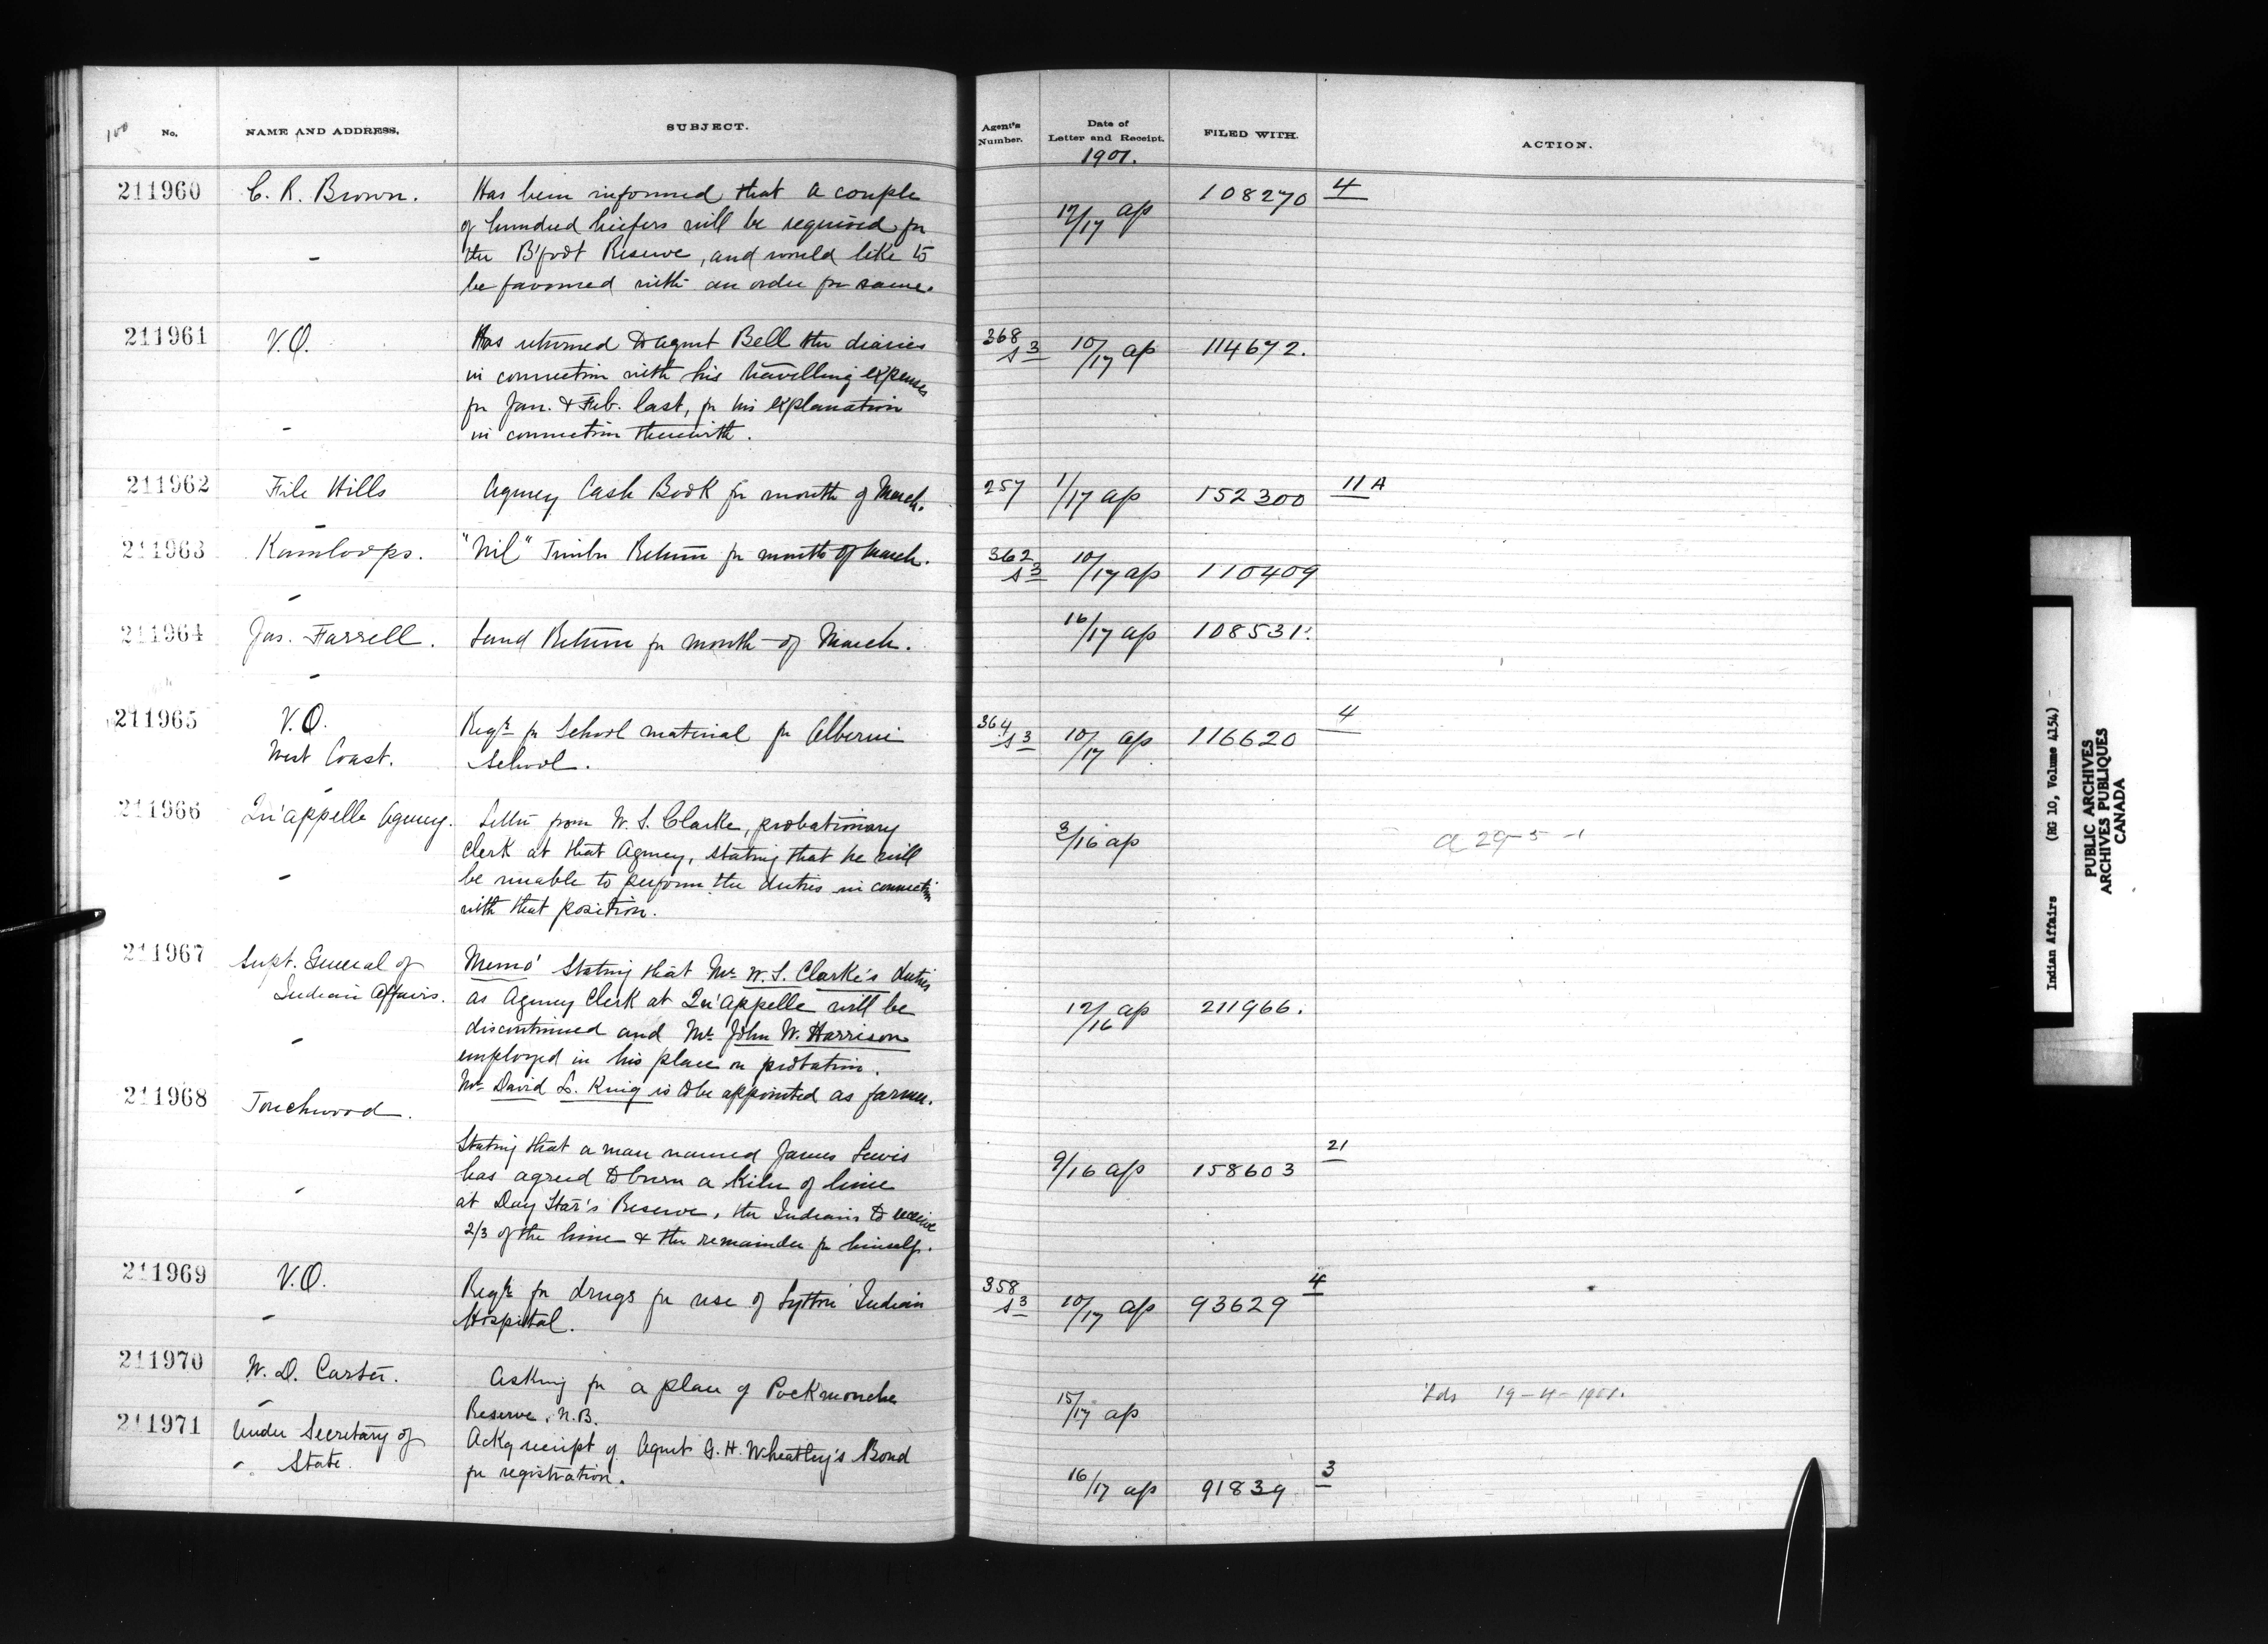 100 No. NAME AND ADDRESS. SUBJECT. Agent's Number. Date of Letter and Receipt. 1901. FILED WITH. ACTION.
211960 C. R. Brown. Has been informed that a couple 108270 4
of hundred heifers will be required for 12/17 ap
the B'foot Reserve, and would like to
be favoured with an order for same.
211961 V.O. Has returned to agent Bell the diaries 368 s3 10/17 ap 114672.
in connection with his travelling expenses
for Jan. & Feb. last, for his explanation
in connection therewith.
211962 File Hills Agency Cash Book for month of March. 257 1/17 ap 152300 11A
211963 Kamloops. "Nil" Timber Return for month of March. 362 s3 10/17 ap 110409
211964 Jas. Farrell. Land Return for month of March. 16/17 ap 108531.
211965 V.O. Reqn for School material for Alberni 364 s3 10/17 ap 116620 4
West Coast. School.
211966 Qu'appelle Agency. Letter from W. S. Clarke, probationary 3/16 ap a 29-5-1
clerk at that Agency, stating that he will
be unable to perform the duties in connection
with that position.
211967 Supt. General of Memo' stating that Mr W. S. Clarke's duties
Indian Affairs. as Agency Clerk at Qu'appelle will be 12/16 ap 211966.
discontinued and Mr John W. Harrison
employed in his place on probation.
Mr David L. King is to be appointed as farmer.
211968 Touchwood.
Stating that a man named James Lewis 21
has agreed to burn a kiln of lime 9/16 ap 158603
at Day Star's Reserve, the Indians to receive
2/3 of the lime & the remainder for himself.
211969 V.O. Reqn for drugs for use of Lytton Indian 358 s3 10/17 ap 93629 4
Hospital.
211970 W. D. Carter. Asking for a plan of Pockmouche 15/17 ap 19-4-1901.
Reserve, N.B.
211971 Under Secretary of Ackg receipt of Agent G. H. Wheatley's Bond
State. for registration. 16/17 ap 91839 3
Indian Affairs (RG 10, Volume 4154)
PUBLIC ARCHIVES
ARCHIVES PUBLIQUES
CANADA